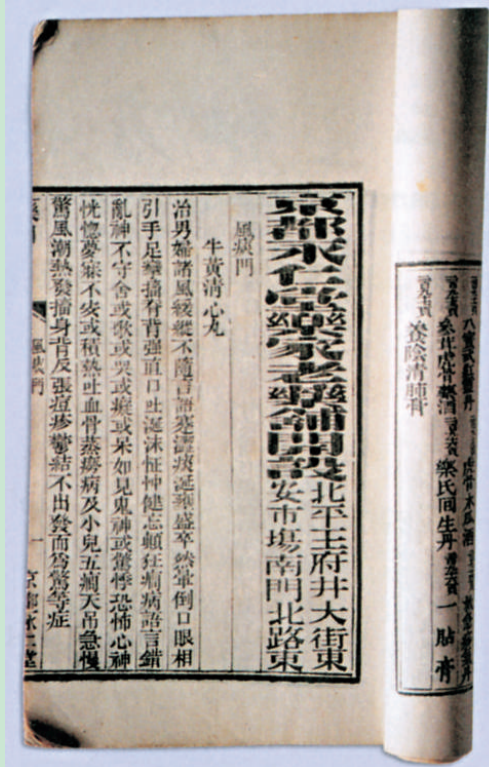 養陰清肺膏
參茸虎骨藥酒 樂氏回生丹 一貼膏
京都永仁堂樂家老藥鋪開設 北平王府井大街東
安市場南門北路東
風痰門
牛黃清心丸
治男婦諸風緩縱不隨言語蹇澀痰涎壅盛卒然暈倒口眼相
引手足攣搐脊背强直口吐涎沫怔忡健忘顛狂癇病語言錯
亂神不守舍或歌或哭或癡或呆如見鬼神或驚悸恐怖心神
恍惚夢寐不安或積熱吐血骨蒸癆病及小兒五癇天吊急慢
驚風潮熱發搐身背反張痘疹鬱結不出發而為驚等症
風痰門 一 京都永仁堂